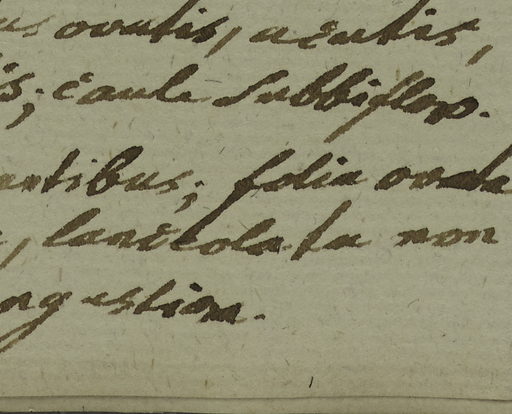 us ovatis, acutis,
is; caule subbiflor.
antibus; folia ovata
lanceolata non
ngustiora.